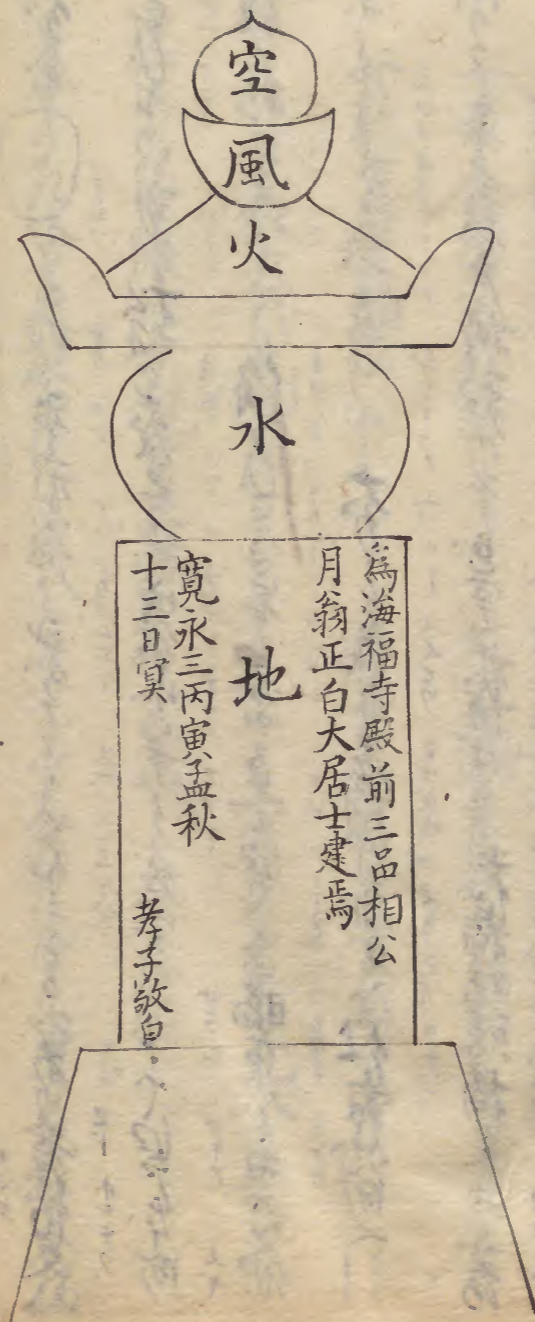 空
風
火
水
地
為海福寺殿前三品相公
月翁正白大居士建焉
寛永三丙寅孟秋
十三日冥
孝子敬白